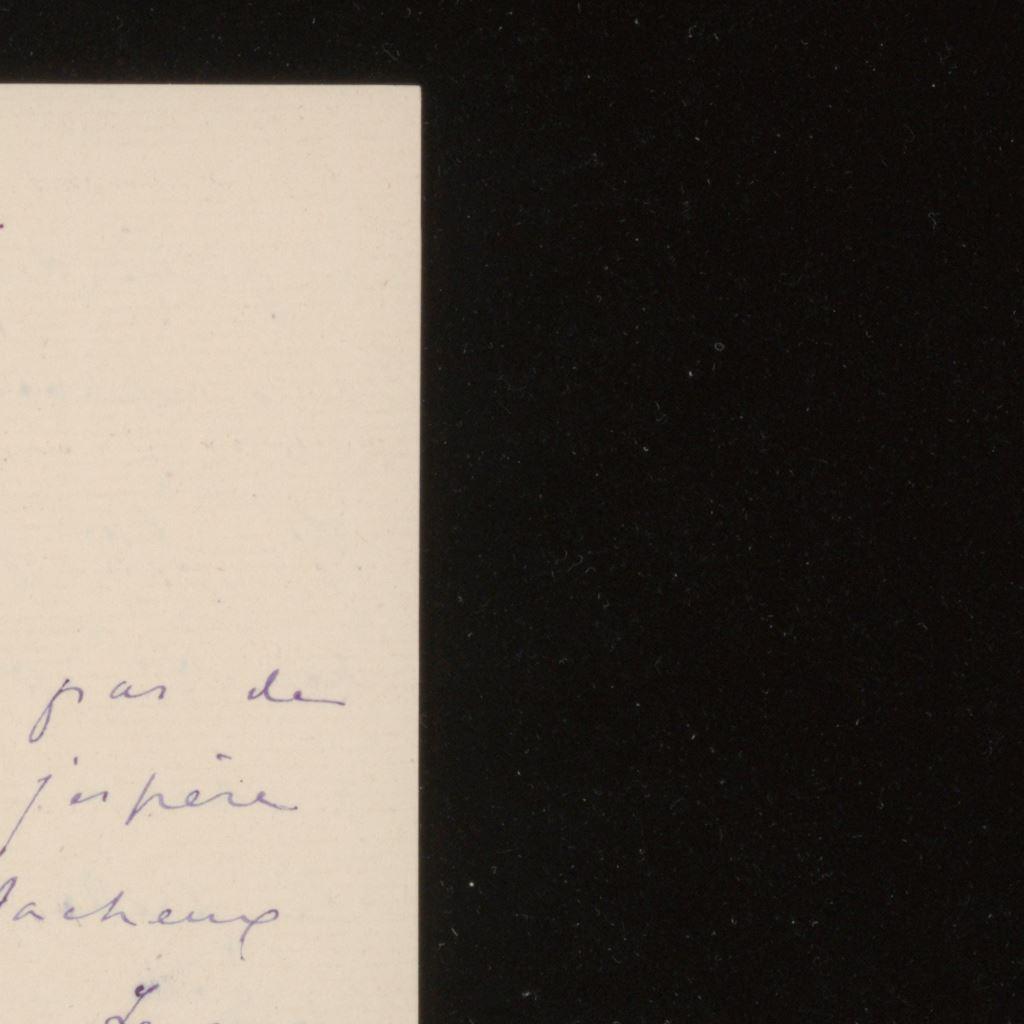 pas de
j'espère
facheux